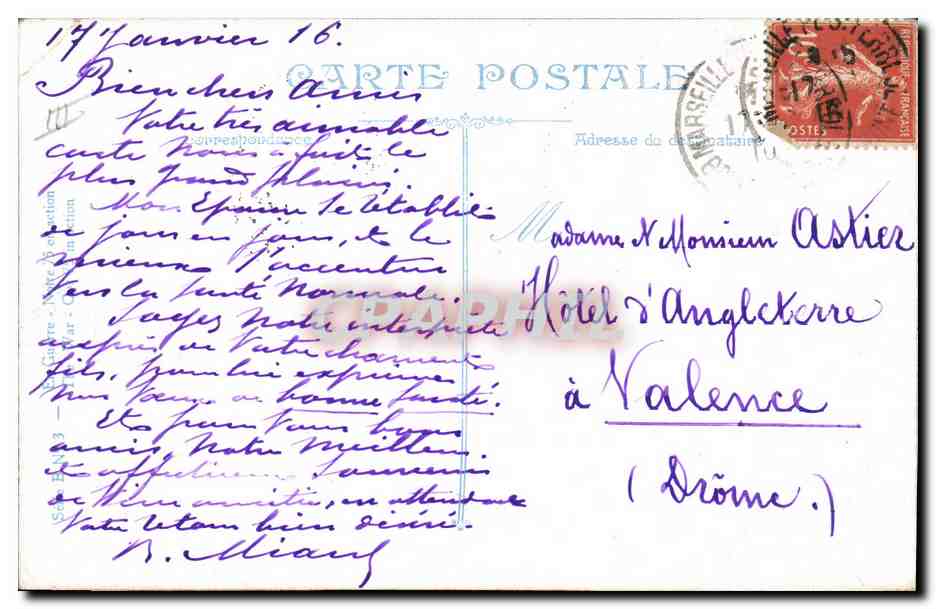 17 Janvier 16.
CARTE POSTALE
Bien chers amis
III
Votre très aimable
Correspondance
Adresse du destinataire
carte nous a fait le
plus grand plaisir.
Mon Epouse se rétablit
de jour en jour, et le
mieux s'accentue
vers la santé normale.
Soyez notre interprète
auprès de votre charmant
fils, pour lui exprimer
nos vœux de bonne santé.
Et pour vous bons
amis, notre meilleur
et affectueux souvenir
de sincère amitié, en attendant
Votre retour bien désiré.
Madame & Monsieur Astier
Hôtel d'Angleterre
à Valence
(Drôme.)
MARSEILLE
17
POSTES
FRANÇAISE
En Guerre - Notre 75 en action
The War - Our 75 in action
CPAPHIL